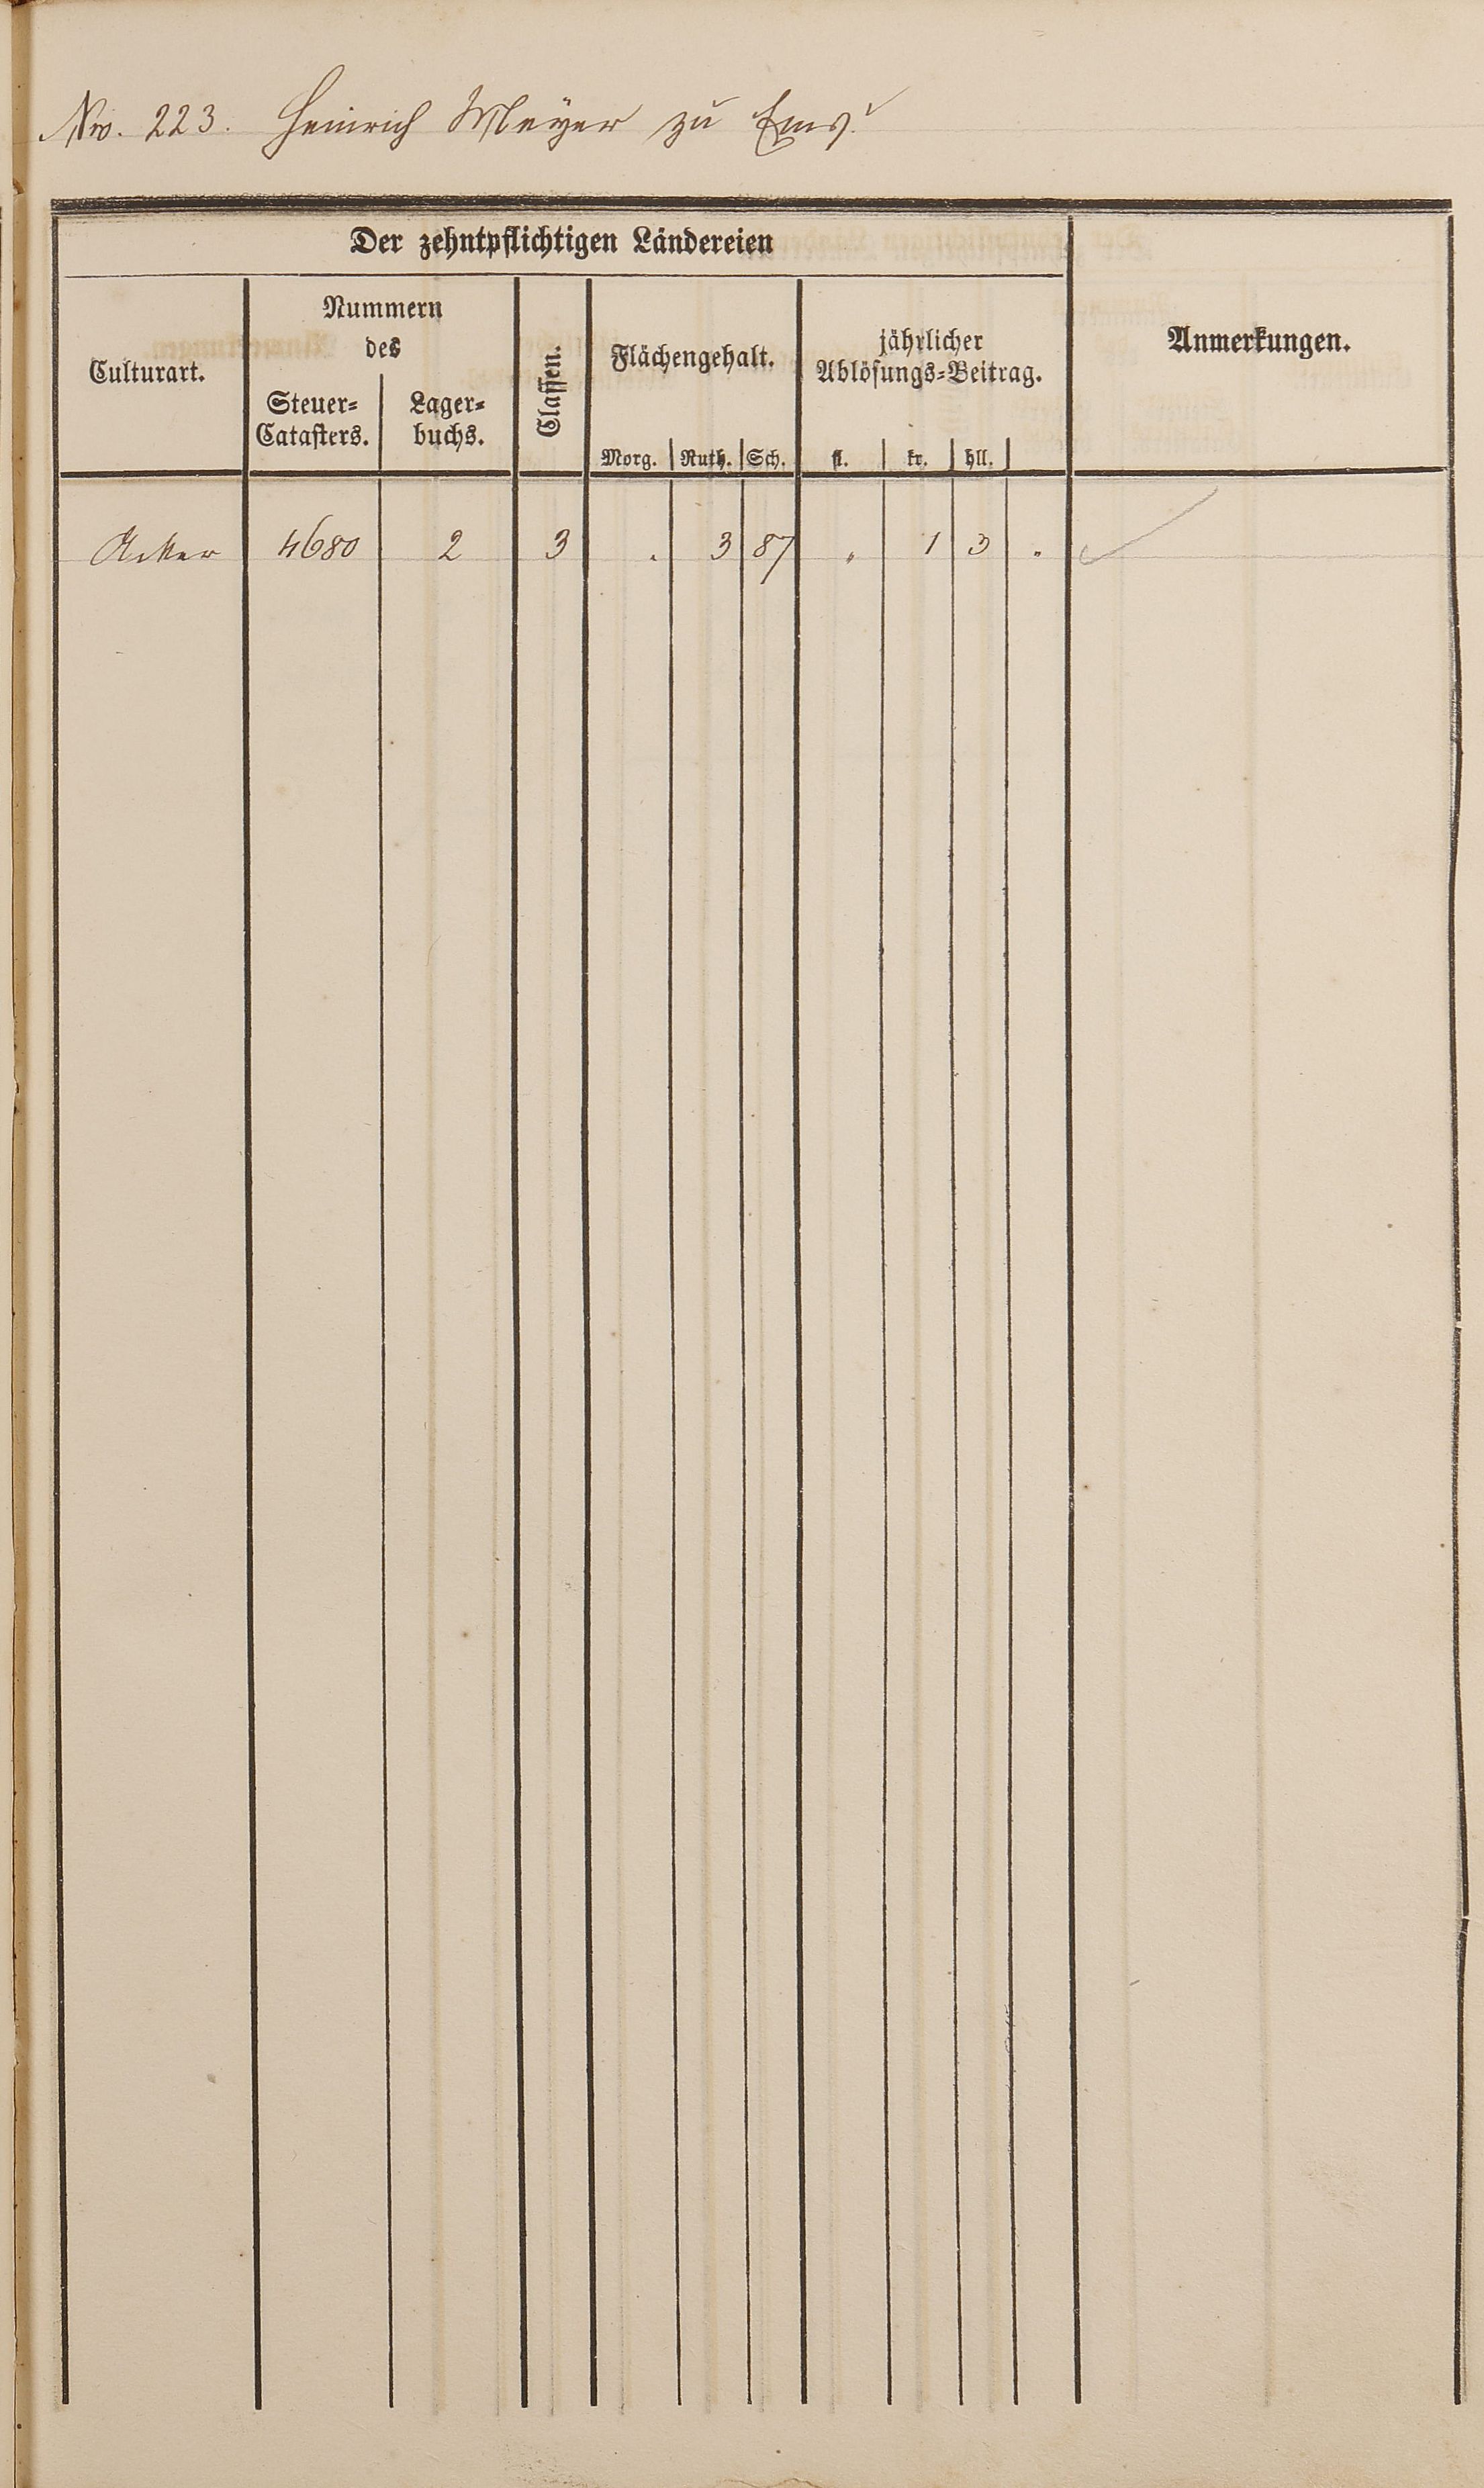 No. 223. Heinrich Meÿer zu Ems.
Der zehntpflichtigen Ländereien
Culturart.
Nummern
des
Steuer-
Catasters.
Lager-
buchs.
Classen.
Flächengehalt.
Morg. Ruth. Sch.
jährlicher
Ablösungs-Beitrag.
fl. kr. hll.
Anmerkungen.
Acker 4680 2 3 . 3 87 " 1 3 "